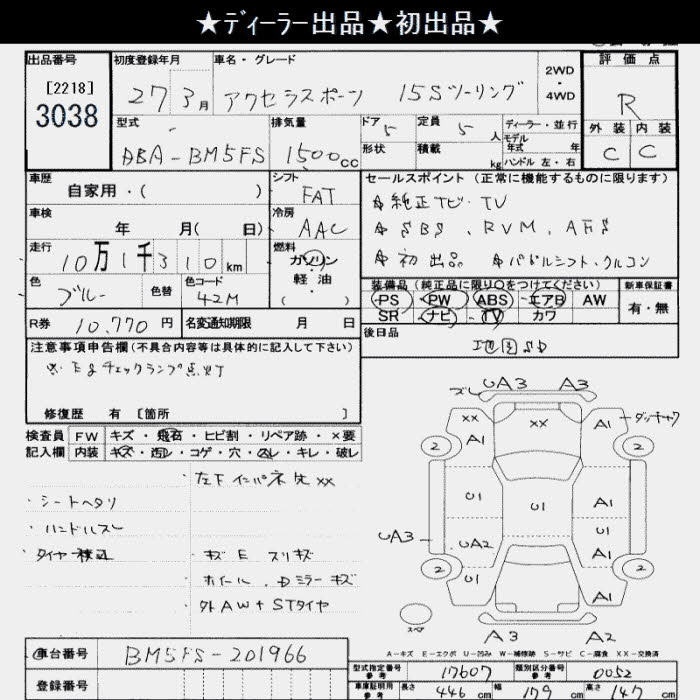 ★ディーラー出品★初出品★
出品番号
[2218]
3038
初度登録年月
27 3月
車名・グレード
アクセラスポーツ 15Sツーリング
2WD
・
4WD
評価点
R
外装 内装
C C
型式
ABA-BM5FS
排気量
1500cc
ドア 5
形状
定員 5 人
積載 kg
ディーラー・並行
モデル
年式 年
ハンドル 左・右
車歴
自家用・( )
シフト
FAT
車検
年 月( 日)
冷房
AAC
走行
10万1千310km
燃料
ガソリン
軽油
( ・ )
色
ブルー
色替
色コード
42M
R券 10,770円
名変通知期限 月 日
セールスポイント (正常に機能するものに限ります)
純正ナビ・TV
SBS, RVM, AFS
初出品 パドルシフト・クルコン
装備品(純正品に限り○をつけてください)
PS PW ABS エアB AW
SR ナビ TV カワ
新車保証書
有・無
後日品
地図SD
注意事項申告欄(不具合内容等は具体的に記入して下さい)
チェックランプ点灯
修復歴 有 [箇所 ]
検査員 FW キズ・飛石・ヒビ割・リペア跡・×要
記入欄 内装 キズ・汚レ・コゲ・穴・スレ・キレ・破レ
左下インパネ先XX
・シートヘタリ
・ハンドルスレ
キズ E スリキズ
ホイール, Dミラーキズ
外AW+STタイヤ
ズレ UA3 A3
XX XX A1 ダッチャク
A1
2 2
U1 U1 A1
U1
UA3 UA2 A1
2 U1 2
A1
スペア
A3 A2
A-キズ E-エクボ U-凹み W-補修跡 S-サビ C-腐食 XX-交換済
車台番号 BM5FS-201966
登録番号
型式指定番号 参考 17607
類別区分番号 参考 0052
車庫証明用 参考 長さ 446 cm 幅 179 cm 高さ 147 cm